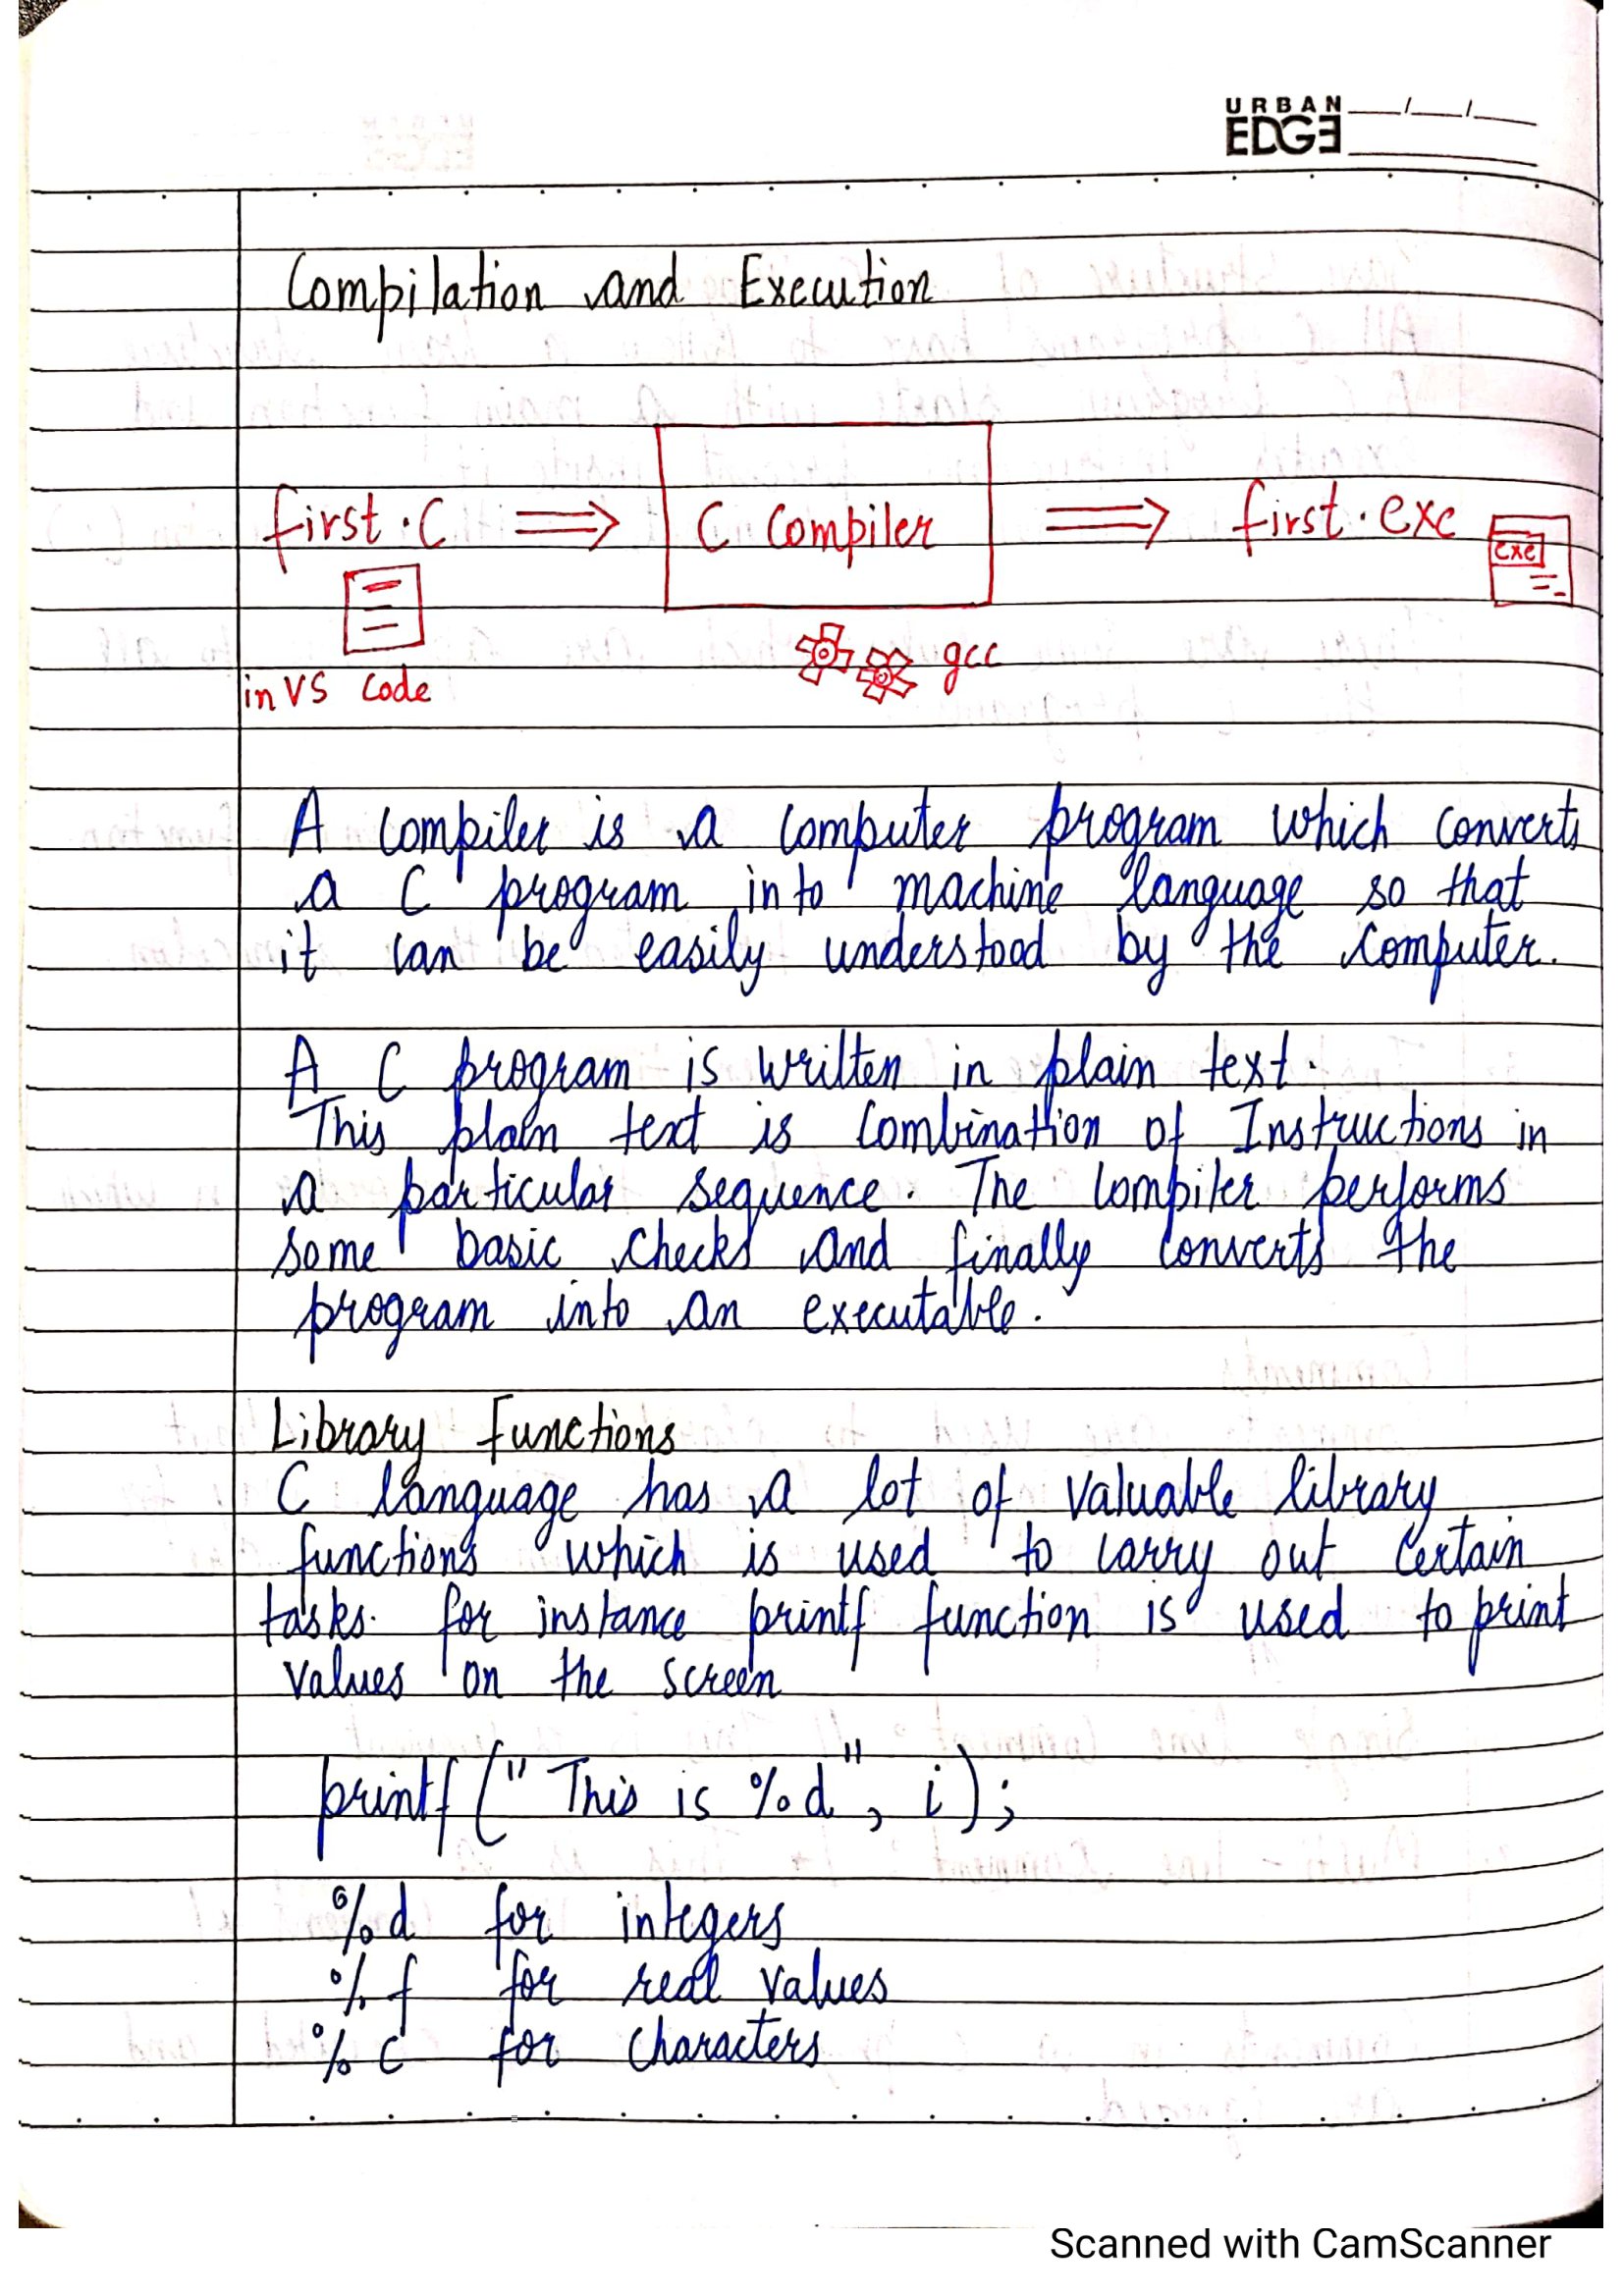 URBAN
EDGE
Compilation and Execution
first.C ⟹ C Compiler ⟹ first.exe
exe
in VS Code
gcc
A compiler is a computer program which converts
a C program into machine language so that
it can be easily understood by the computer.
A C program is written in plain text.
This plain text is combination of Instructions in
a particular sequence. The compiler performs
some basic checks and finally converts the
program into an executable.
Library Functions
C language has a lot of valuable library
functions which is used to carry out certain
tasks. for instance printf function is used to print
values on the screen
printf ("This is %d", i);
%d for integers
%f for real values
%c for characters
Scanned with CamScanner